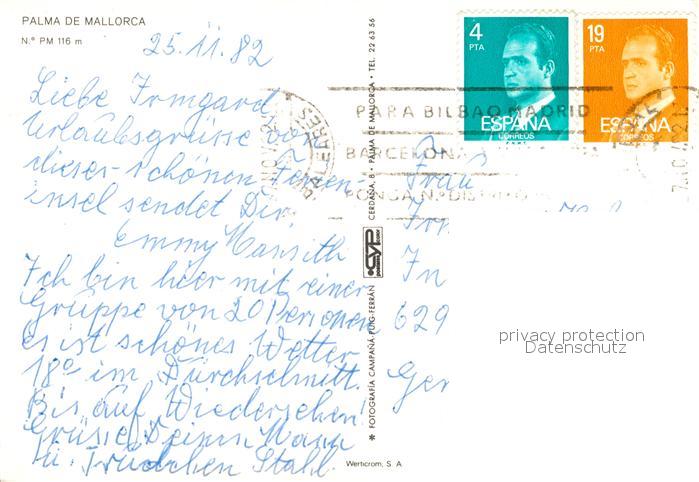 PALMA DE MALLORCA
N.º PM 116 m
25.11.82
Liebe Irmgard
Urlaubsgrüsse von
dieser schönen Ferien-
insel sendet Dir
Emmy
Ich bin hier mit einer
Gruppe von 20 Personen
es ist schönes Wetter
18° im Dürchschnitt.
Bis auf Wiedersehen!
Grüsse Deinen Mann
ü. Trüdchen Stahl.
FOTOGRAFÍA CAMPAÑÁ-PUIG-FERRÁN
CYP
CERDAÑA, 8 • PALMA DE MALLORCA • TEL. 22 63 56
Werticrom, S. A.
4
PTA
ESPAÑA
CORREOS
19
PTA
ESPAÑA
CORREOS
PARA BILBAO MADRID
BARCELONA
PONGA N.º DIS
BALEARES
Frau
629
Ger
privacy protection
Datenschutz